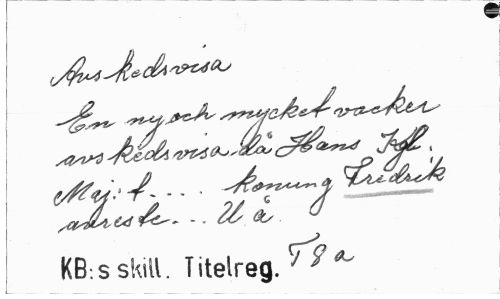 Avskedsvisa
En ny och mycket vacker
avskedsvisa då Hans Kgl.
Maj:t .... konung Fredrik
avreste... U å.
KB:s skill. Titelreg. T 8 a